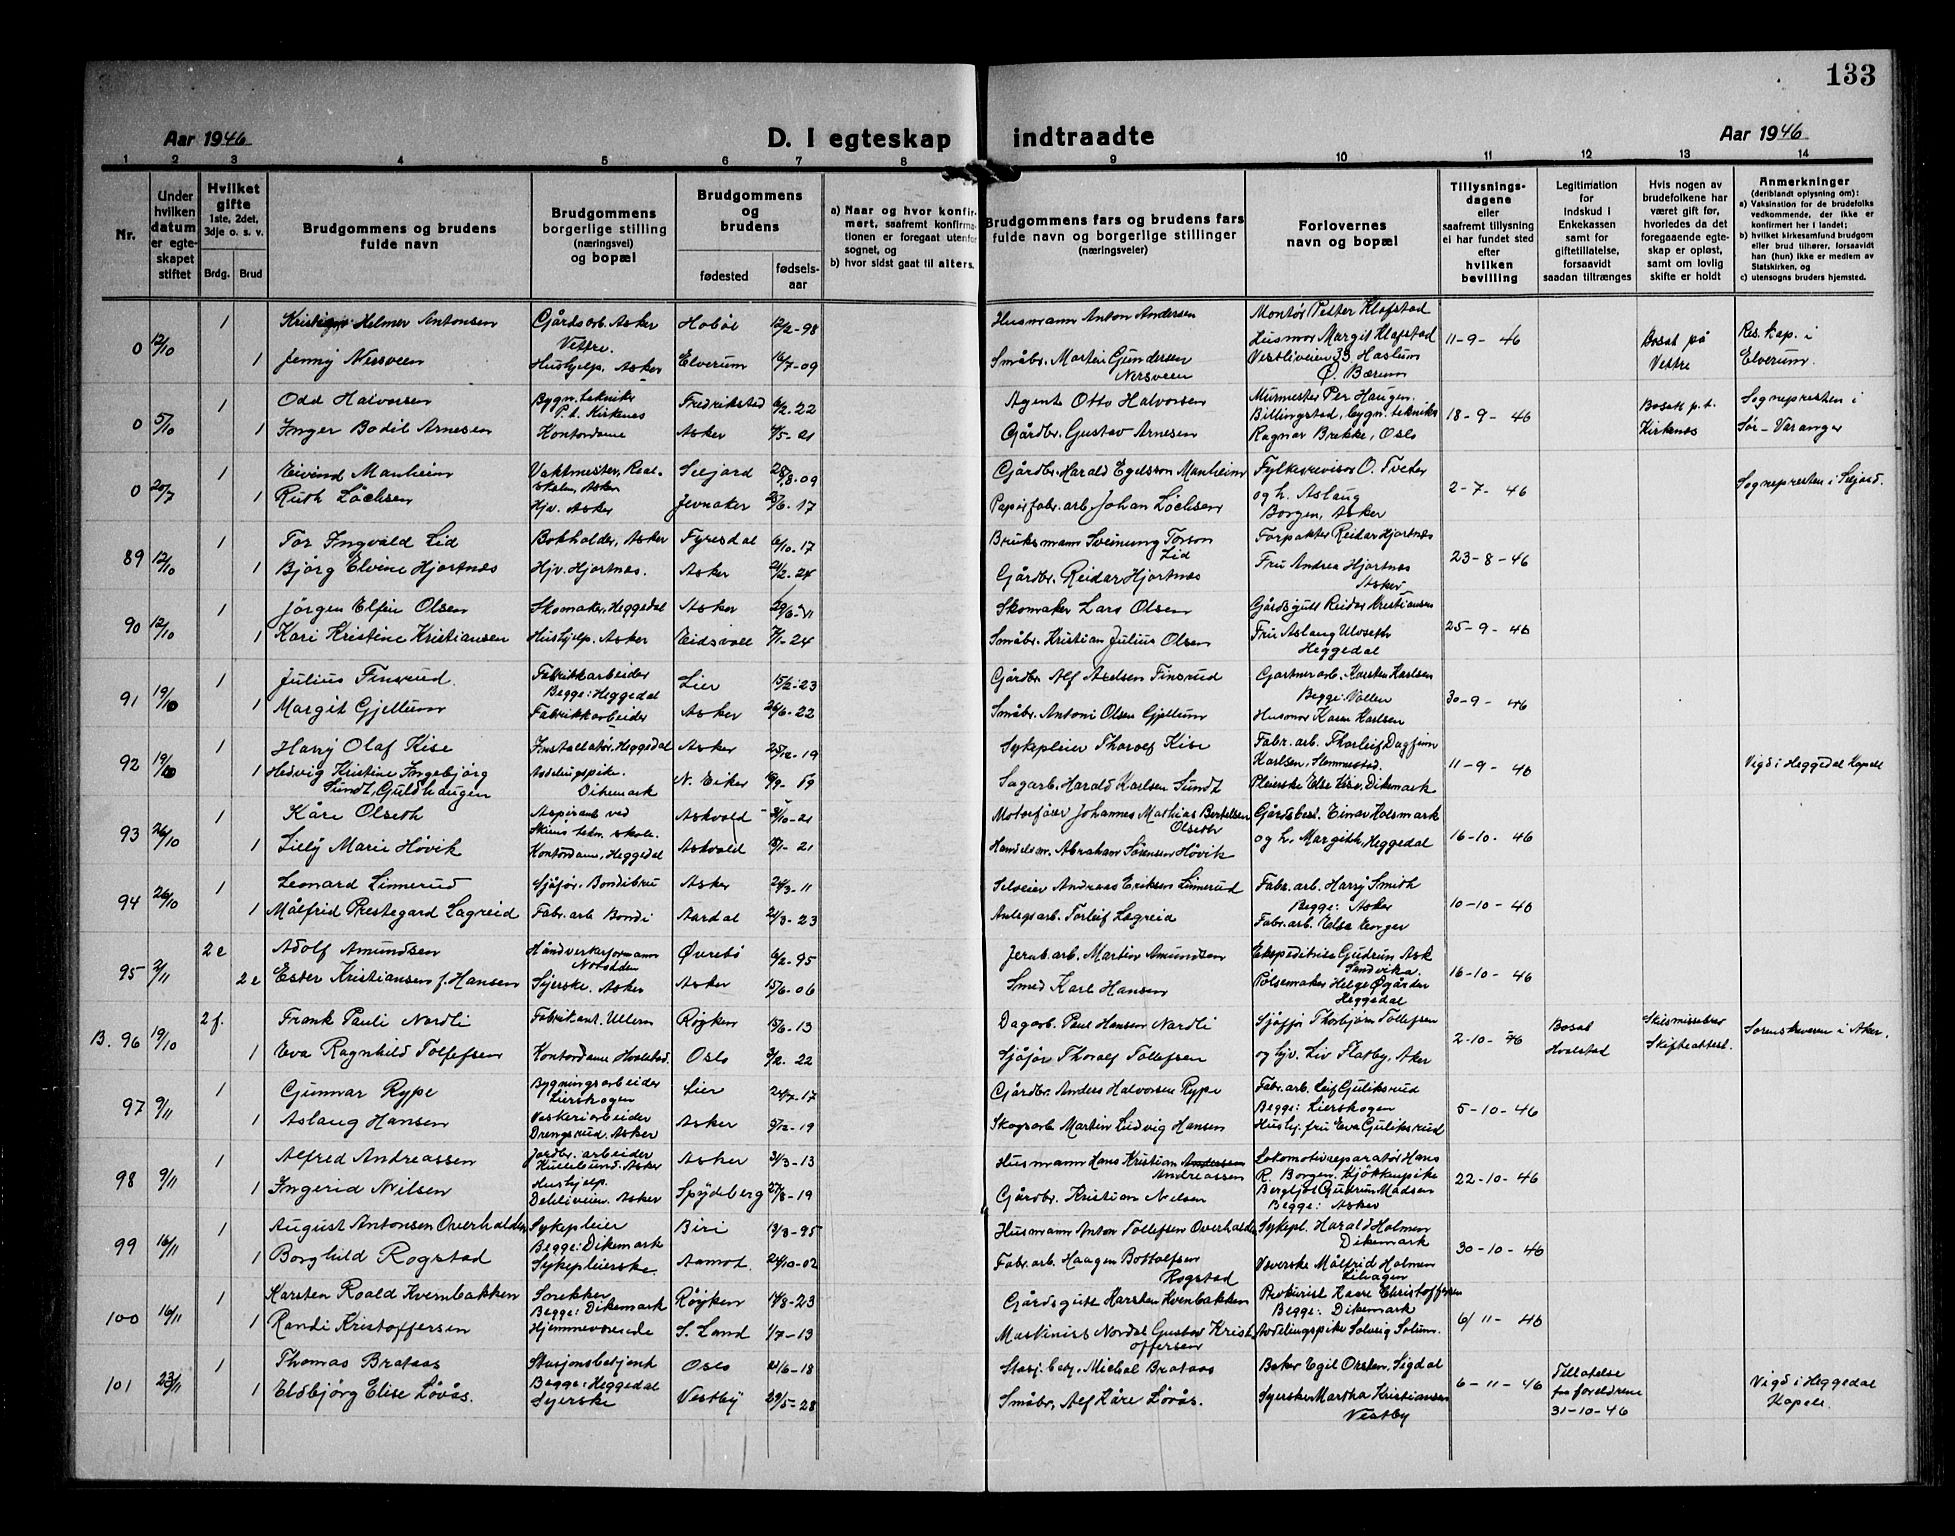 133
Aar 1946
D. I egteskap indtraadte
Aar 1946
1 2 3 4 5 6 7 8 9 10 11 12 13 14
Nr.
Under hvilken datum er egteskapet stiftet
Hvilket gifte 1ste, 2det, 3dje o. s. v.
Brdg. Brud
Brudgommens og brudens fulde navn
Brudgommens borgerlige stilling (næringsvei) og bopæl
Brudgommens og brudens
fødested
fødselsaar
a) Naar og hvor konfirmert, saafremt konfirmationen er foregaat utenfor sognet, og
b) hvor sidst gaat til alters.
Brudgommens fars og brudens fars fulde navn og borgerlige stillinger (næringsveier)
Forlovernes navn og bopæl
Tillysningsdagene eller saafremt tillysning ei har fundet sted efter hvilken bevilling
Legitimation for Indskud i Enkekassen samt for giftetillatelse, forsaavidt saadan tiltrænges
Hvis nogen av brudefolkene har været gift før, hvorledes da det foregaaende egteskap er opløst, samt om lovlig skifte er holdt
Anmerkninger (deriblandt oplysning om):
a) Vaksination for de brudefolks vedkommende, der ikke er konfirmert her i landet;
b) hvilket kirkesamfund brudgom eller brud tilhører, forsaavidt han (hun) ikke er medlem av Statskirken, og
c) utensogns bruders hjemsted.
0 12/10 1 Helmer Antonsen Gårdsarb. Asker Vettre. Hobøl 12/2-98 Husmann Anton Andersen Montør Petter Klafstad
1 Jenny Nersveen Hushjelp, Asker Elverum 16/7-09 Småbr. Martin Gundersen Nersveen Husmor Margit Klafstad Vestliveien 33 Haslum Ø. Bærum 11-9-46 Bosat på Vettre Res. kap. i Elverum.
0 5/10 1 Odd Halvorsen Bygn. tekniker P.t. Kirkenes Fredrikstad 6/2-22 Agent Otto Halvorsen Murmester Per Haugen,
1 Inger Bodil Arnesen Kontordame Asker 4/5-21 Gårdbr. Gustav Arnesen Billingstad, bygn. tekniker Ragnar Brekke, Oslo 18-9-46 Bosatt p.t. Kirkenes Sognepresten i Sør-Varanger
0 20/7 1 Eivind Manheim Vaktmester, Realskolen, Asker Seljord 28/8-09 Gårdbr. Harald Egelsson Manheim Fylkesrevisor O. Tveter
1 Ruth Løchsen Hjv. Asker Jevnaker 23/6-17 Papirfabr. arb. Johan Løchsen og h. Aslaug Borgen, Asker 2-7-46 Sognepresten i Seljord.
89 12/10 1 Tor Ingvald Lid Bokholder, Asker Fyresdal 6/10-17 Bruksmann Sveinung Torson Lid Forpakter Reidar Hjortnæs
1 Bjørg Elvine Hjortnæs Hjv. Hjortnæs. Asker 21/2-24 Gårdbr. Reidar Hjortnæs Fru Andrea Hjortnæs Asker 23-8-46
90 12/10 1 Jørgen Elfin Olsen Skomaker, Heggedal Asker 29/6-21 Skomaker Lars Olsen Gårdsgutt Reidar Kristiansen
1 Kari Kristine Kristiansen Hushjelp. Asker Eidsvoll 7/1-24 Småbr. Kristian Julius Olsen Fru Aslaug Ulvseth Heggedal 25-9-46
91 19/10 1 Julius Finsrud. Fabrikkarbeider Begge: Heggedal Lier 15/2-23 Gårdbr. Alf Axelsen Finsrud Gartner arb. Karsten Karlsen Begge: Vollen
1 Margit Gjellum Fabrikkarbeider Asker 26/6-22 Småbr. Antoni Olsen Gjellum Husmor Karen Karlsen 30-9-46
92 19/10 1 Harry Olaf Kise Installatør, Heggedal Asker 25/12-19 Sykepleier Thorolf Kise Fabr. arb. Thorleif Dagfinn Karlsen, Slemmestad.
1 Hedvig Kristine Ingebjørg Sundt, Guldhaugen Avdelingspike. Dikemark N. Eiker 18/9-19 Sagarb. Harald Karlsen Sundt Pleierske Else Kise, Dikemark 11-9-46 Vigd i Heggedal Kapell
93 26/10 1 Kåre Olseth Aspirant ved Skiens tekn. skole. Askvold 3/10-21 Motorfører Johannes Mathias Bertelsen Olseth Gårdsbest. Einar Holsmark
1 Lilly Marie Høvik Kontordame, Heggedal Askvold 18/1-21 Handelsm. Abraham Sørensen Høvik og h. Margitt, Heggedal 16-10-46
94 26/10 1 Leonard Linnerud Sjåfør. Bondibru Asker 24/3-11 Selveier Andreas Eriksen Linnerud Fabr. arb. Harry Smith Begge: Asker
1 Målfrid Prestegard Lagreid Fabr. arb. Bondi Aardal 21/3-23 Anlegsarb. Torleif Lagreid Fabr. arb. Else 10-10-46
95 2/11 2e Adolf Amundsen Håndverkerformann Notodden Øvrebø 6/2-95 Jernb. arb. Martin Amundsen Ekspeditrise Gudrun Ask Sandvika.
2e Ester Kristiansen f. Hansen Syerske. Asker Asker 15/6-06 Smed Karl Hansen Pølsemaker Helge Øgården Heggedal 16-10-46
B. 96 19/10 2 f. Frank Pauli Nordli Fabrikant. Ullern Røyken 15/6-13 Dagarb. Paul Hansen Nordli Sjåfør Thorbjørn Tollefsen
1 Eva Ragnhild Tollefsen Kontordame Hvalstad. Oslo 3/2-22 Sjåfør Thorolf Tollefsen og hjv. Liv Flatby, Asker 2-10-46 Bosat Hvalstad Skilsmissebev. Skifteattest. Sorenskriveren i Aker.
97 9/11 1 Gunnar Rype Bygningsarbeider Lierskogen Lier 24/7-17 Gårdbr. Anders Halvorsen Rype Fabr. arb. Leif Guliksrud Begge: Lierskogen
1 Aslaug Hansen Vaskeriarbeider Drengsrud. Asker Asker 5/12-19 Skogsarb. Martin Ludvig Hansen Hushj. fru Eva Guliksrud 5-10-46
98 9/11 1 Alfred Andreassen Jordbr. arbeider Kullebund. Asker Asker 31/3-13 Husmann Hans Kristian Andersen Andreassen Lokomotivreparatør Hans R. Borgen. Kjøkkenpike
1 Ingerid Nilsen Hushjelp. Asker Spydeberg 27/8-19 Gårdbr. Kristian Nilsen Bergljot Gudrun Madsen Begge: Asker 22-10-46
99 16/11 1 August Antonsen Overhalden Sykepleier Begge: Dikemark Biri 13/3-95 Husmann Anton Tollefsen Overhalden Sykepl. Harald Holmen Dikemark
1 Borghild Rogstad Sykepleierske. Aamot. 24/10-02 Fabr. arb. Haagen Bottolfsen Rogstad Væverske Målfrid Holmen Lihagen 30-10-46
100 16/11 1 Karsten Roald Kvernbakken Snekker Begge: Dikemark Røyken 14/8-23 Gårdsgutt Karsten Kvenbakken Prokurist Kaare Christoffersen Begge: Dikemark
1 Randi Kristoffersen Hjemmeværende S. Land 1/7-13 Maskinist Nordal Gustav Kristoffersen Avdelingspike Solveig Solum. 6/11-46
101 23/11 1 Thomas Brataas Stasjonsbetjent Begge: Heggedal Oslo 21/6-18 Stasj. betj. Michal Brataas Baker Egil Orsten, Sigdal
1 Elsbjørg Elise Løvås. Syerske Vestby 29/5-28 Småbr. Alf Kåre Løvås. Syerske Martha Kristiansen Vestby 6-11-46 Tillatelse fra foreldrene 31-10-46 Vigd i Heggedal Kapell.